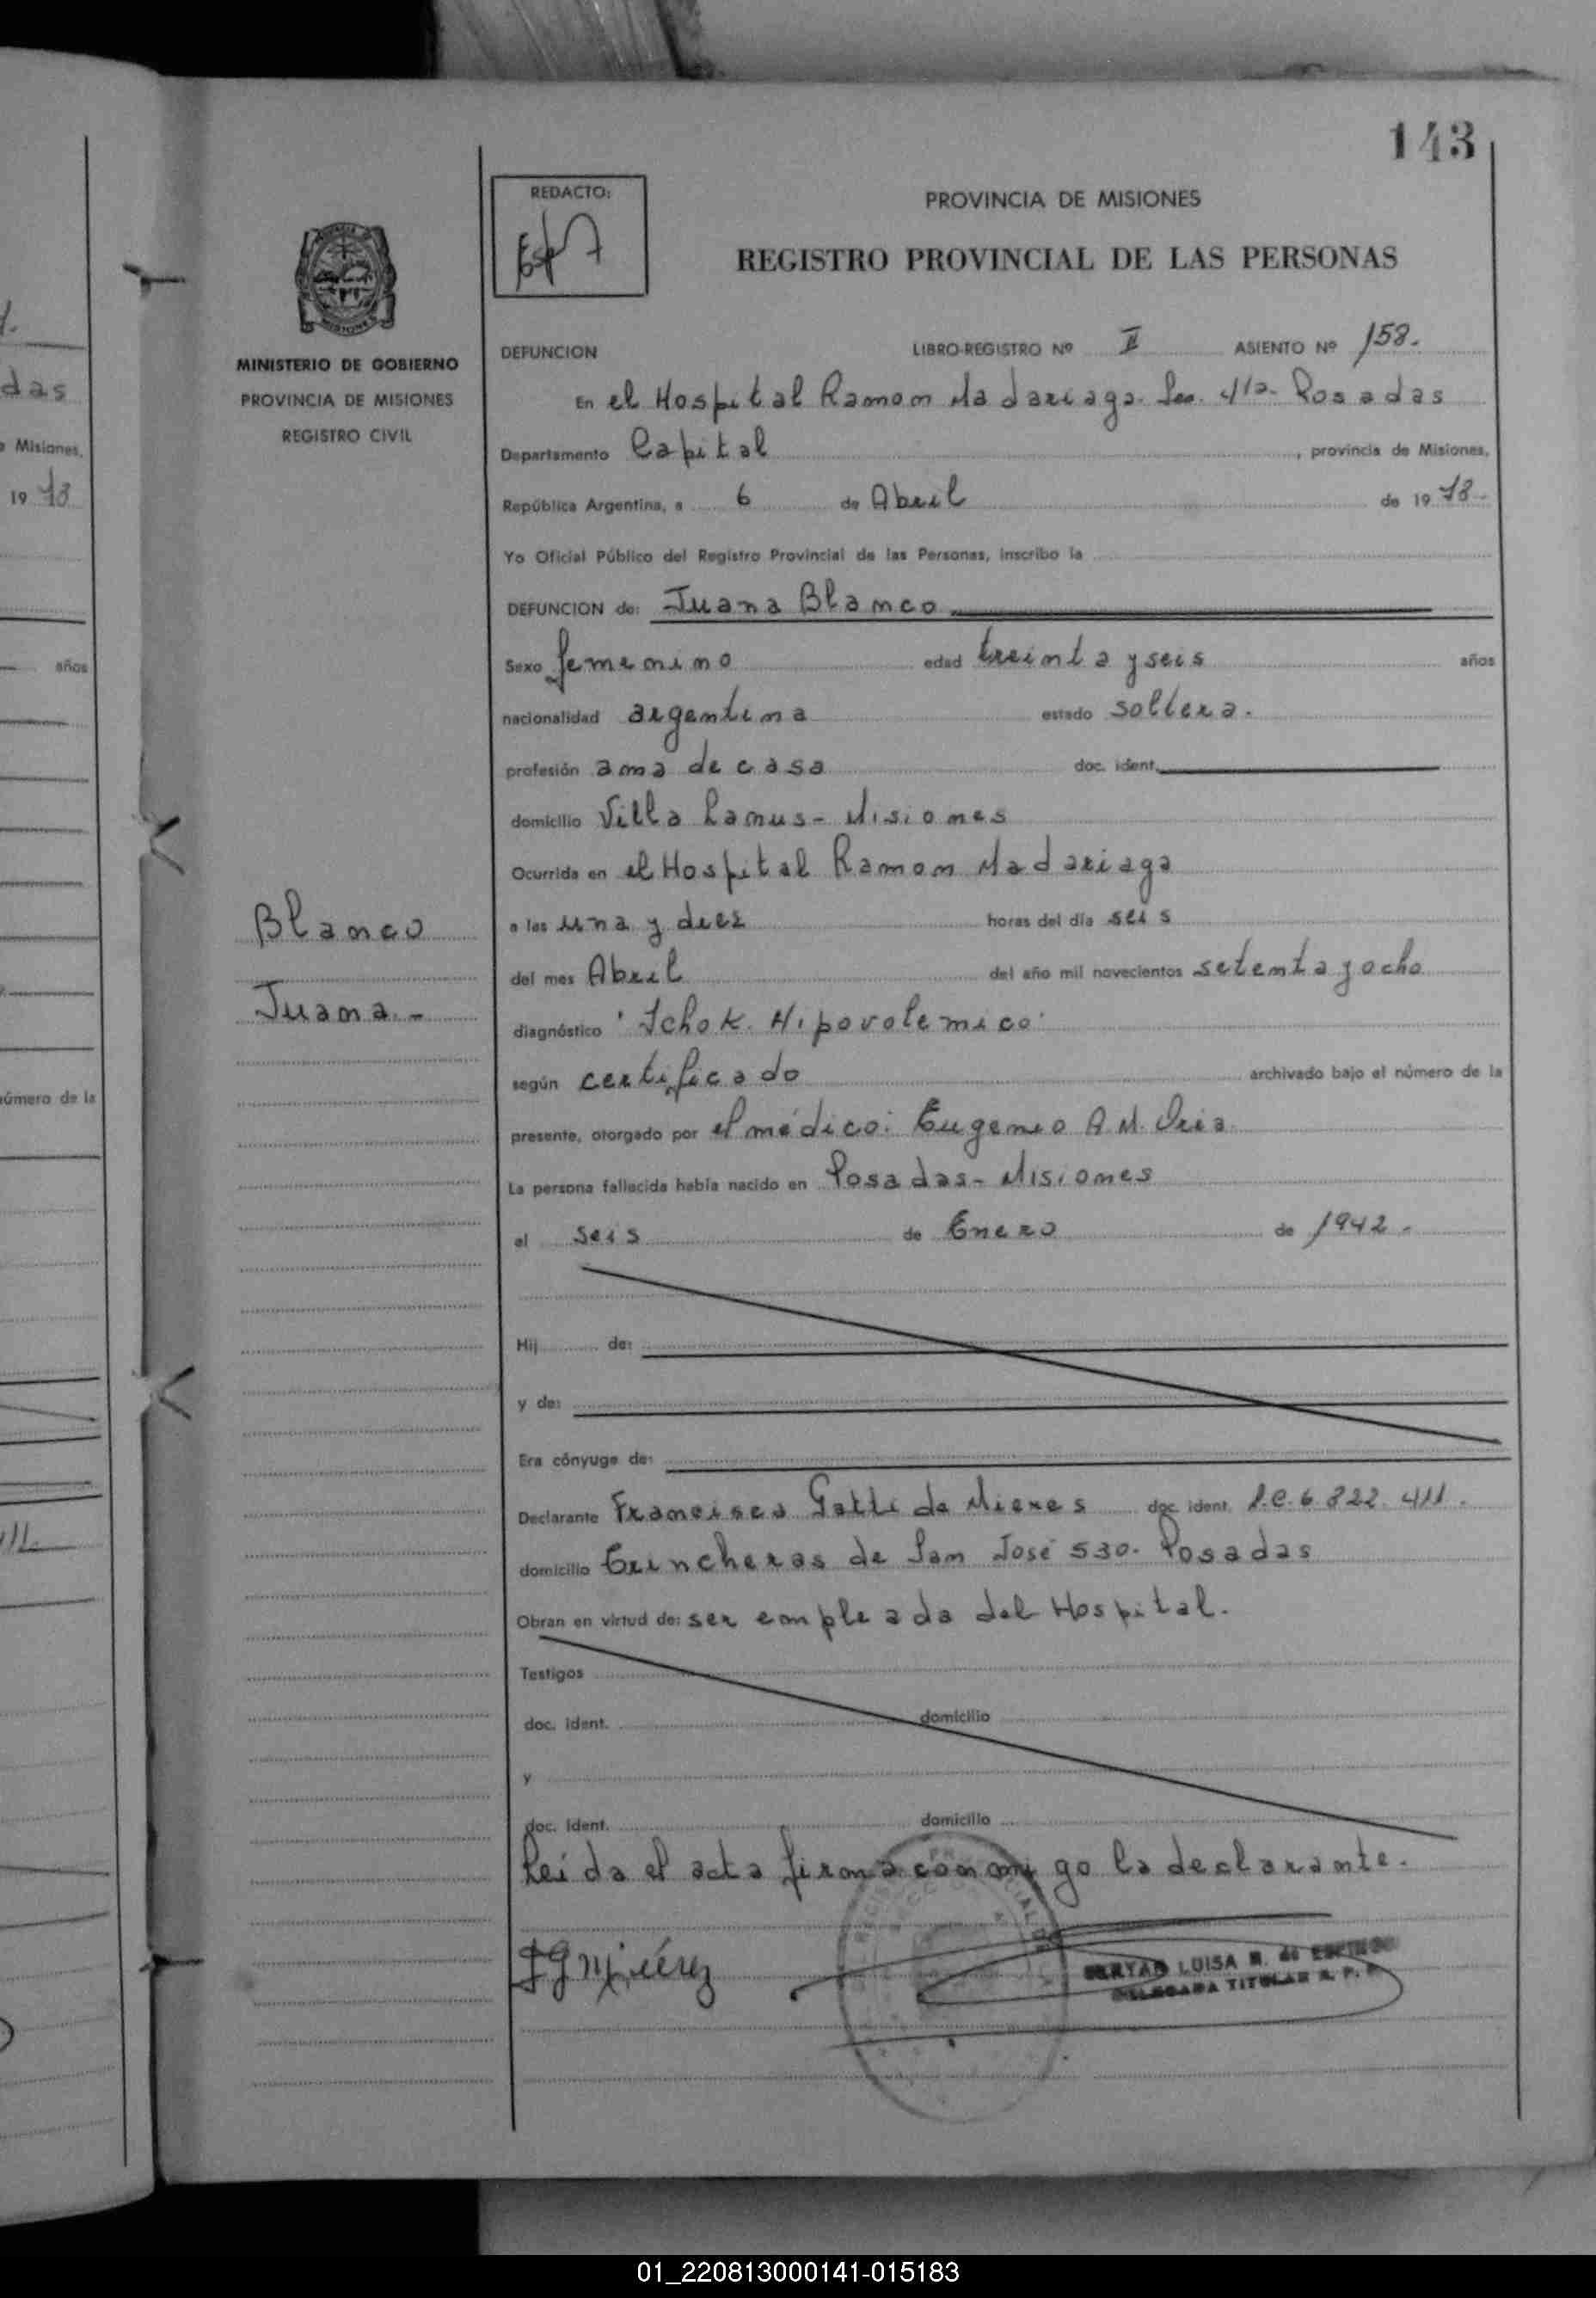 143
REDACTO:
PROVINCIA DE MISIONES
REGISTRO PROVINCIAL DE LAS PERSONAS
MINISTERIO DE GOBIERNO
PROVINCIA DE MISIONES
REGISTRO CIVIL
DEFUNCION LIBRO-REGISTRO Nº II ASIENTO Nº 158.
En el Hospital Ramon Madariaga. Sec. 4ta- Posadas
Departamento Capital, provincia de Misiones,
República Argentina, a 6 de Abril de 1978-
Yo Oficial Público del Registro Provincial de las Personas, inscribo la
DEFUNCION de: Juana Blanco
Sexo femenino edad treinta y seis años
nacionalidad argentina estado soltera.
profesión ama de casa doc. ident.
domicilio Villa Lanus- Misiones
Ocurrida en el Hospital Ramon Madariaga
a las una y diez horas del día seis
del mes Abril del año mil novecientos setenta y ocho
diagnóstico "Schok Hipovolemico"
según certificado archivado bajo el número de la
presente, otorgado por el médico: Eugenio A.M. Oria
La persona fallecida había nacido en Posadas- Misiones
el seis de Enero de 1942.
Blanco
Juana.-
Hij de:
y de:
Era cónyuge de:
Declarante Francisca Gatti de Mieres doc. ident. L.C. 6.822.411.
domicilio Trincheras de San José 530. Posadas
Obran en virtud de: ser empleada del Hospital.
Testigos
doc. ident. domicilio
y
doc. ident. domicilio
Leida el acta firma conmigo la declarante.
LUISA
TITULAR
das
Misiones,
1978
años
número de la
01_220813000141-015183